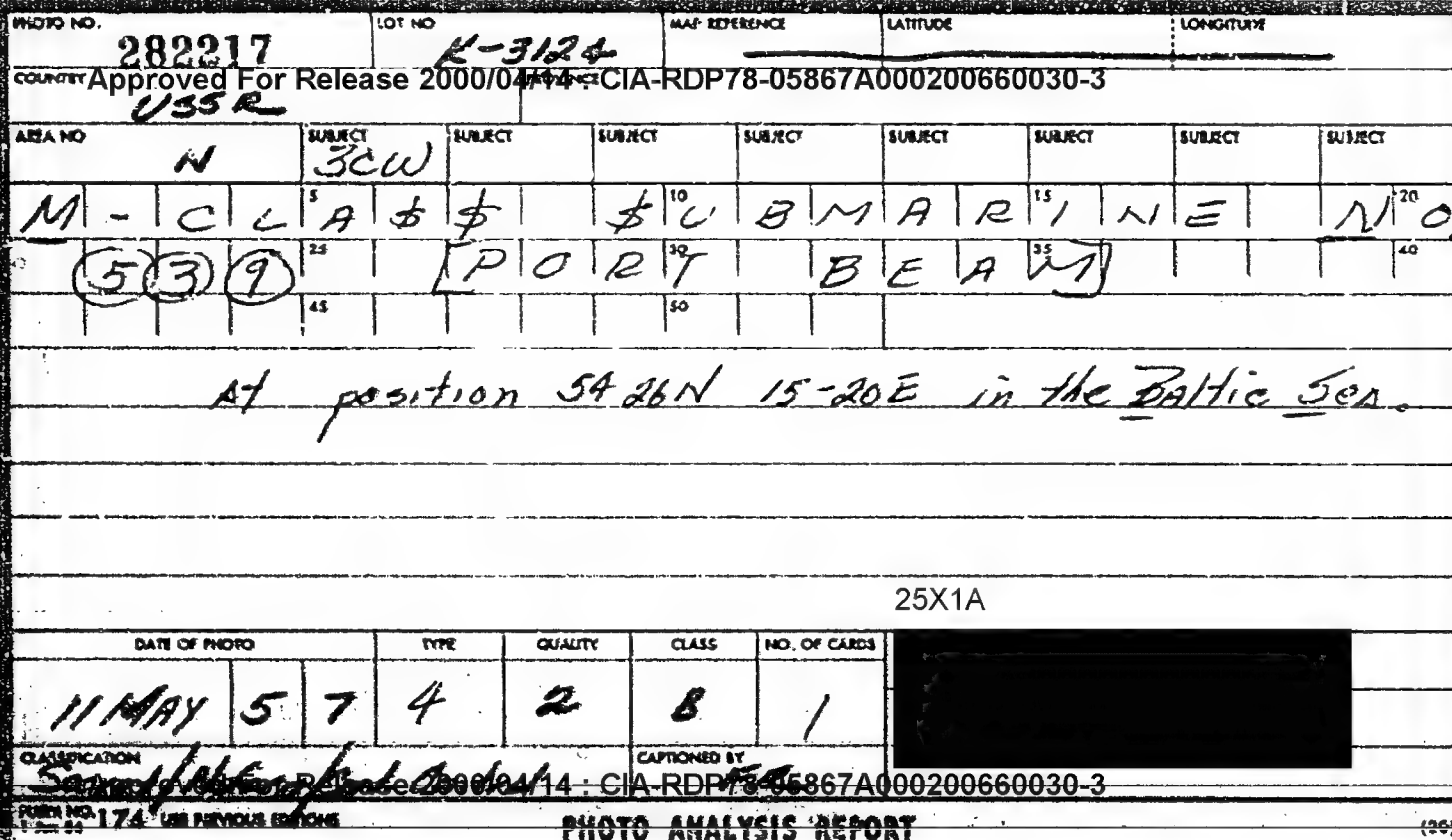 PHOTO NO. LOT NO MAP REFERENCE LATITUDE LONGITUDE
282217 K-3124
COUNTRY Approved For Release 2000/04/14 : CIA-RDP78-05867A000200660030-3
USSR
AREA NO SUBJECT SUBJECT SUBJECT SUBJECT SUBJECT SUBJECT SUBJECT SUBJECT
N 3CW
5 10 15 20
M-CLA$$ $UBMARINE NO
25 30 35 40
539 [PORT BEAM]
45 50
At position 54 26N 15-20E in the Baltic Sea.
25X1A
DATE OF PHOTO TYPE QUALITY CLASS NO. OF CARDS
11 MAY 57 4 2 B 1
CLASSIFICATION CAPTIONED BY
Approved For Release 2000/04/14 : CIA-RDP78-05867A000200660030-3
FORM NO. 174 USE PREVIOUS EDITIONS PHOTO ANALYSIS REPORT